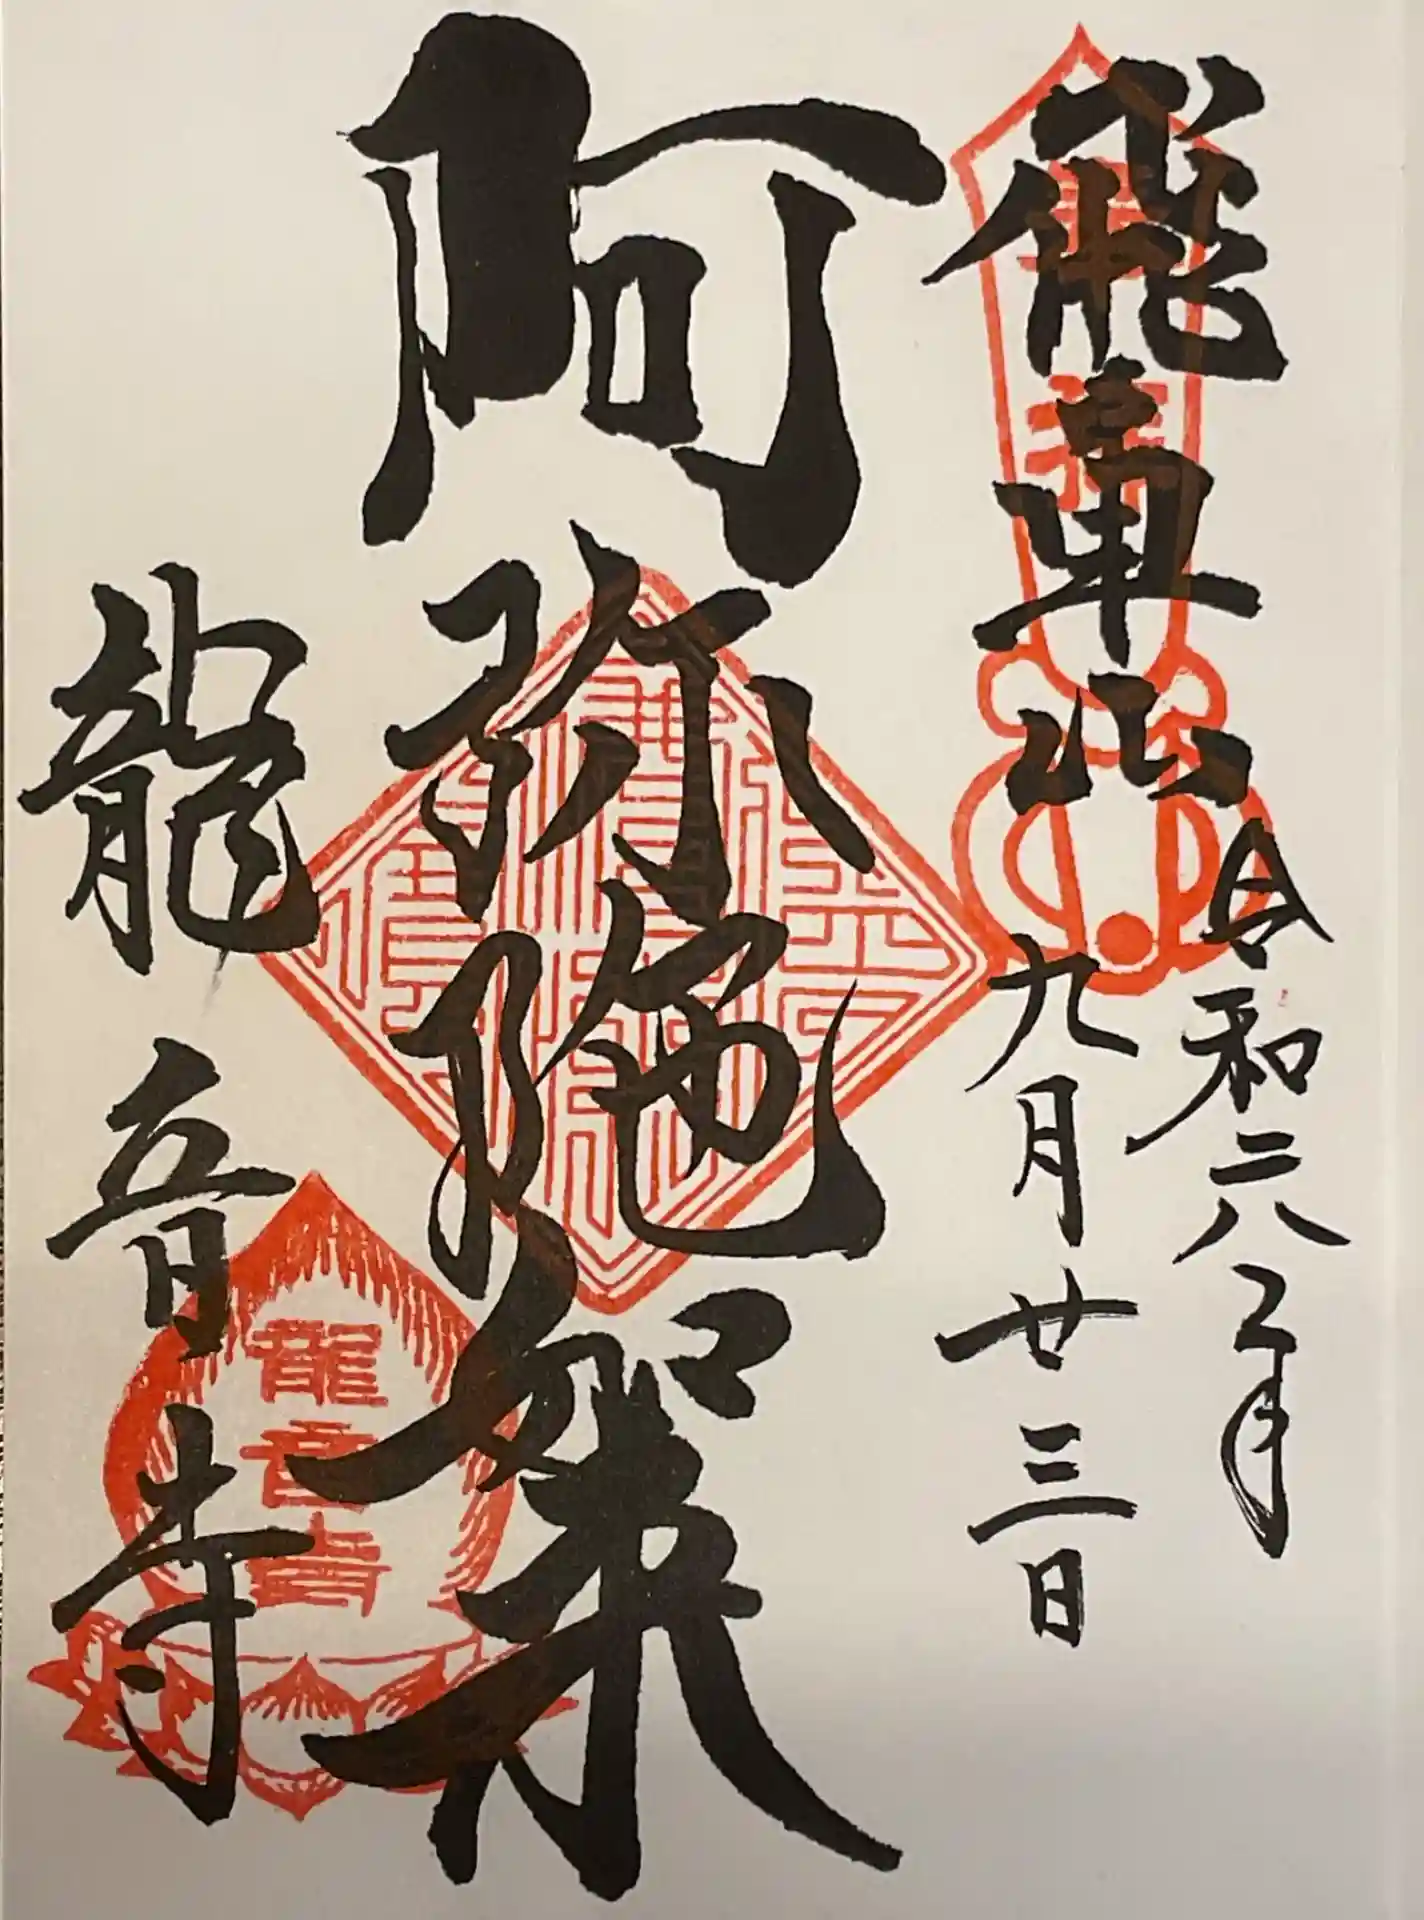 奉拝
飛車山
令和六年
九月廿三日
阿弥陀如来
龍音寺
龍音寺